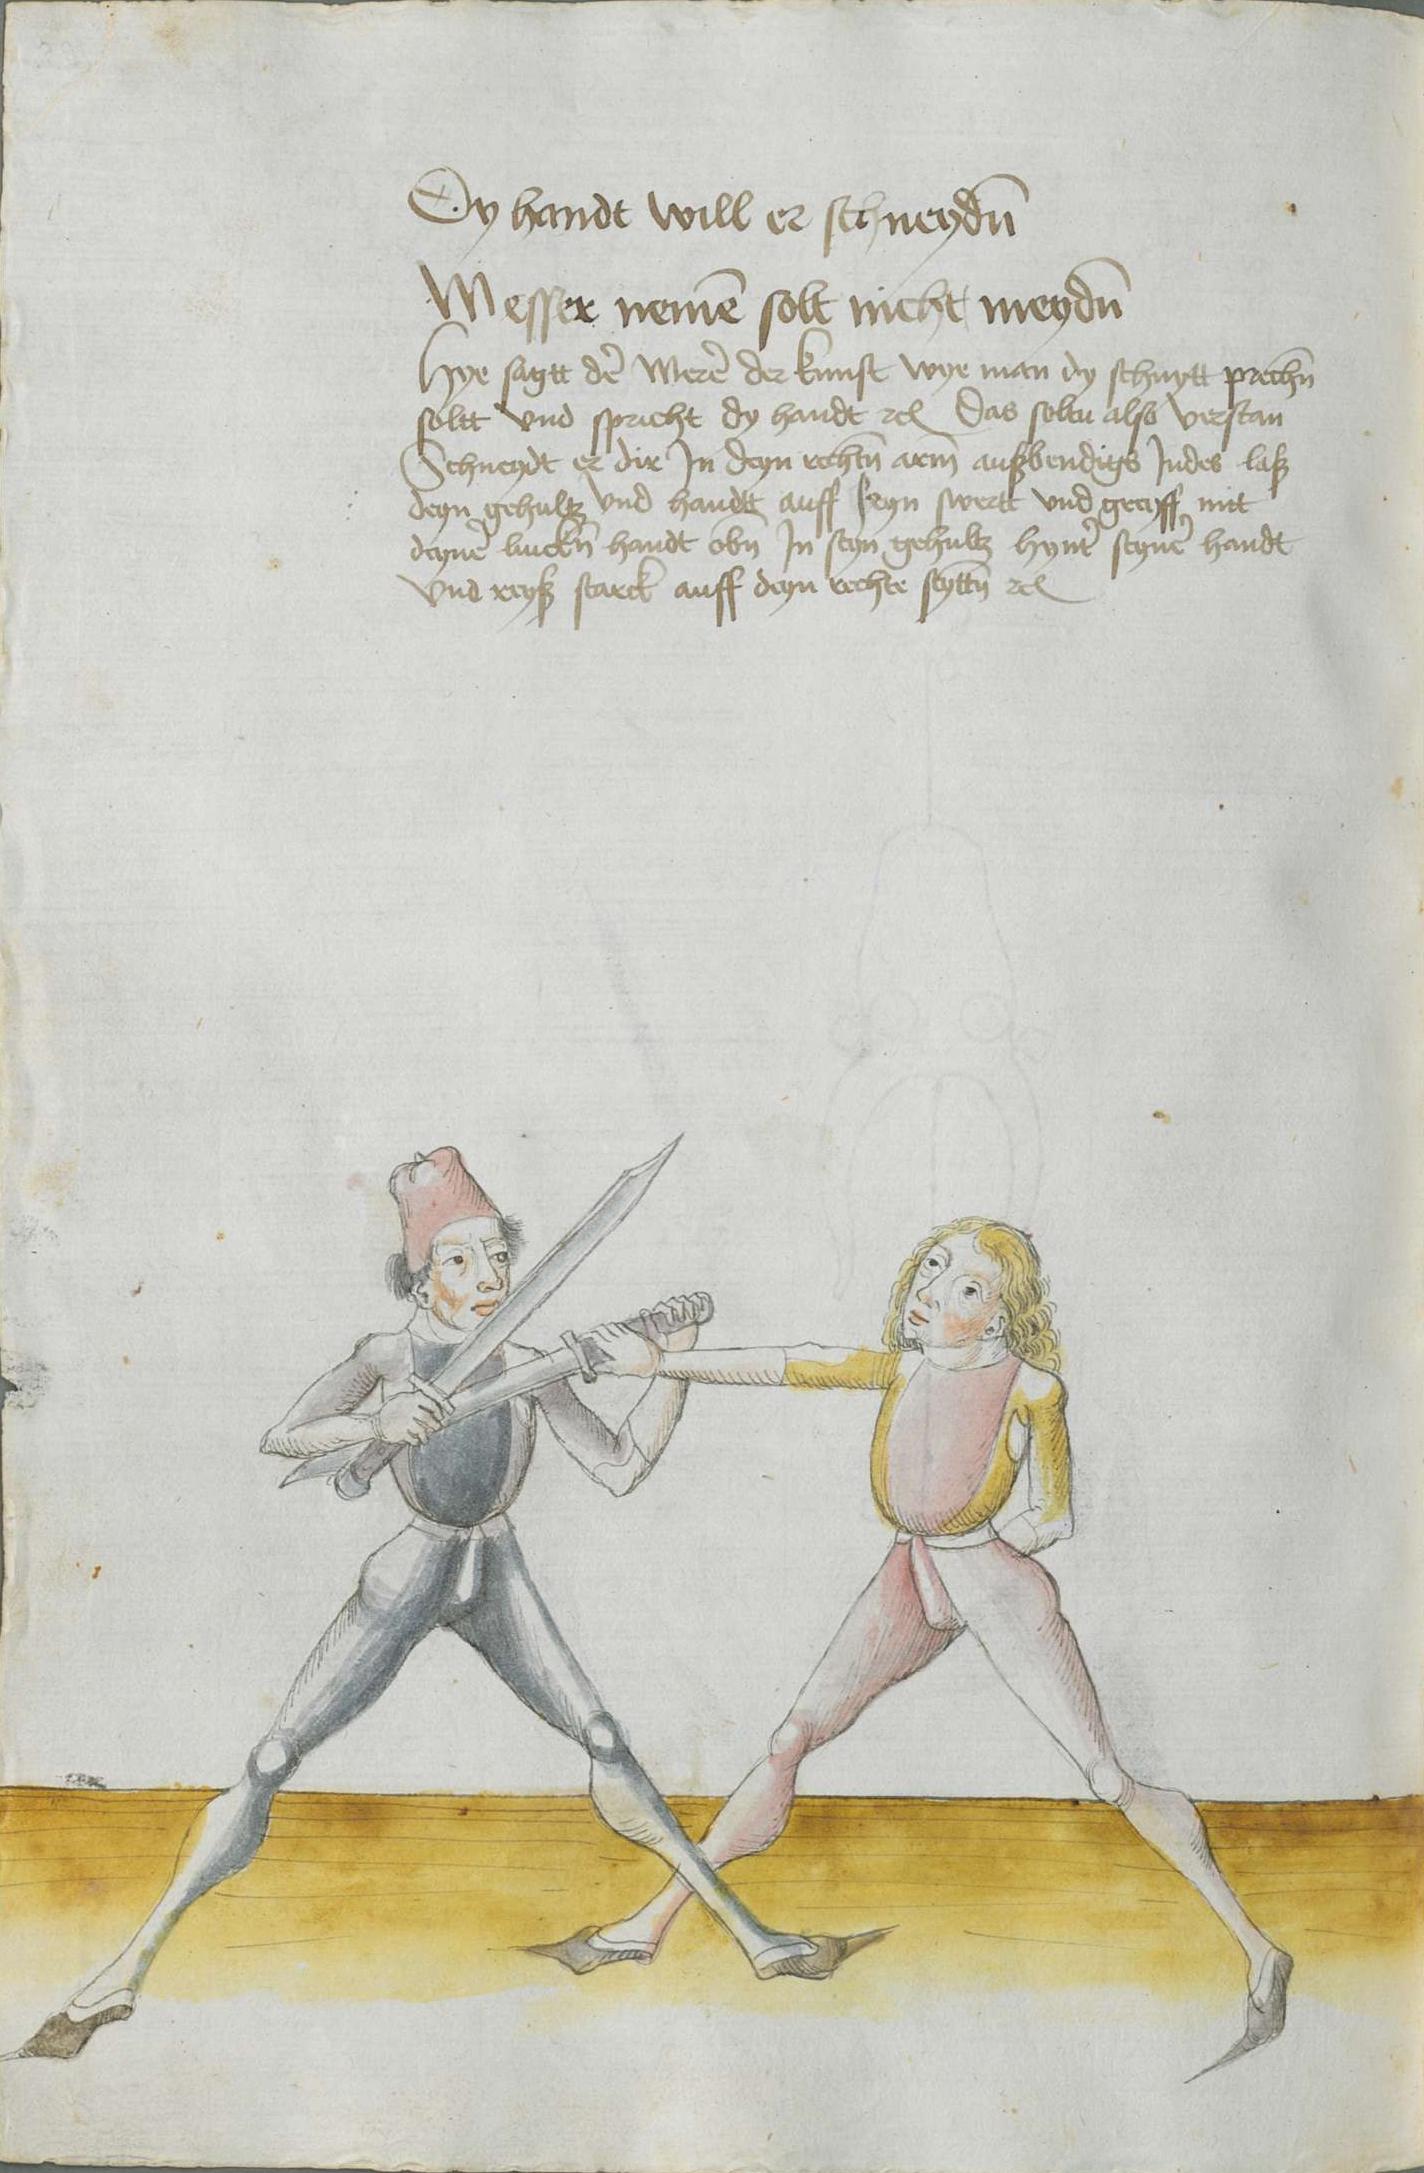 Dy handt will er schneydn̄
Messer nemē solt nicht meydn̄
Hye sagtt dē Merē der kunst wye man dy schnytt prechn̄
soltt vnd spricht dy handt ⁊cͭ Das soltu also verstan
Schneydt er dir In deyn rechtn̄ arm̄ außbendigs Indes laß
deyn gehultz vnd handt auff seyn swertt vnd greyff mit
deynē linckn̄ handt obn̄ In seyn gehultz hyntꝰ seynē handt
vnd reyß starck auff deyn rechte seyttn̄ ⁊cͭ